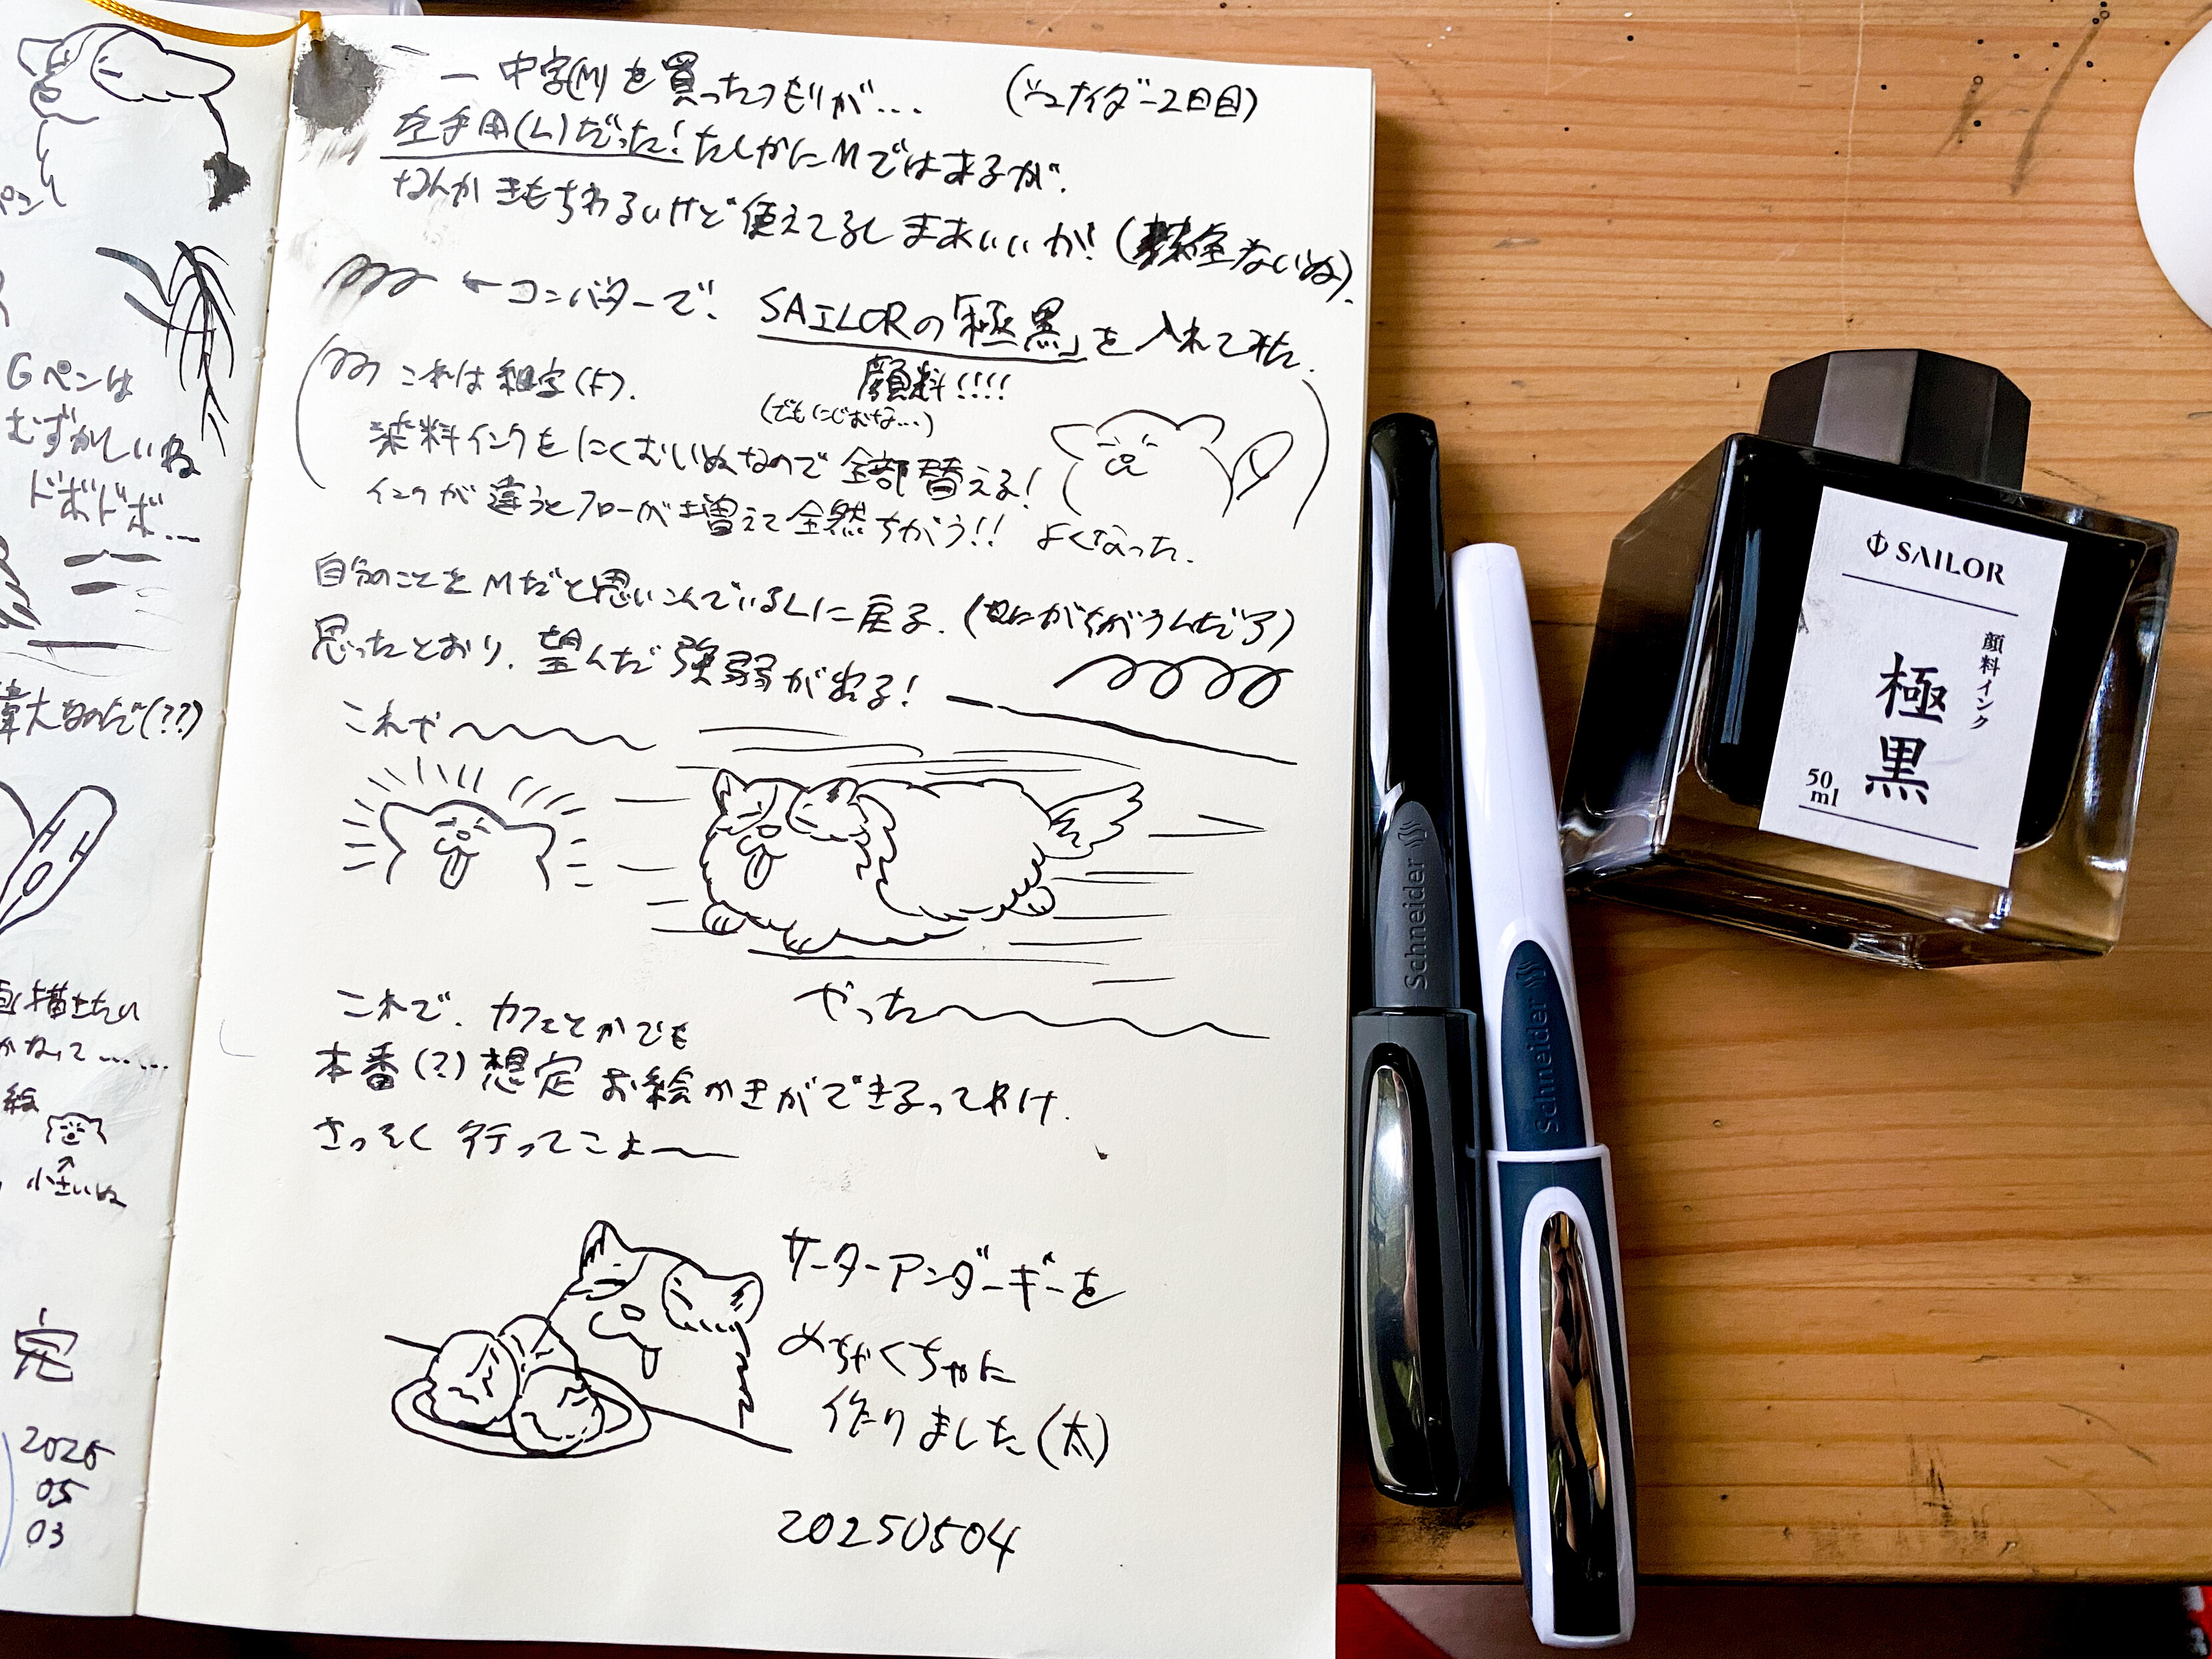 Gペンは
むずかしいね
ドボドボ…
偉大なのだ(??)
描きたい
かなって……
絵
小さいぬ
完
2025
05
03
中字(M)を買ったつもりが…
(シュナイダー2日目)
左手用(L)だった!たしかにMではあるが.
なんかきもちわるいけど使えてるしまあいいか!
←コンバーターで、SAILORの「極黒」を入れてみた.
これは細字(F).
顔料!!!!
(でもにじむな…)
染料インクをにくむいぬなので全部替える!
インクが違うとフローが増えて全然ちがう!! よくなった.
自分のことをMだと思いこんでいるLに戻る. (なにがちがうんだ了)
思ったとおり、望んだ強弱が出る!
これや〜
やった〜
これで、カフェとかでも
本番(?)想定お絵かきができるってわけ.
さっそく行ってこよ〜
サーターアンダーギーを
めちゃくちゃに
作りました(太)
20250504
Schneider
Schneider
SAILOR
顔料インク
極黒
50
ml